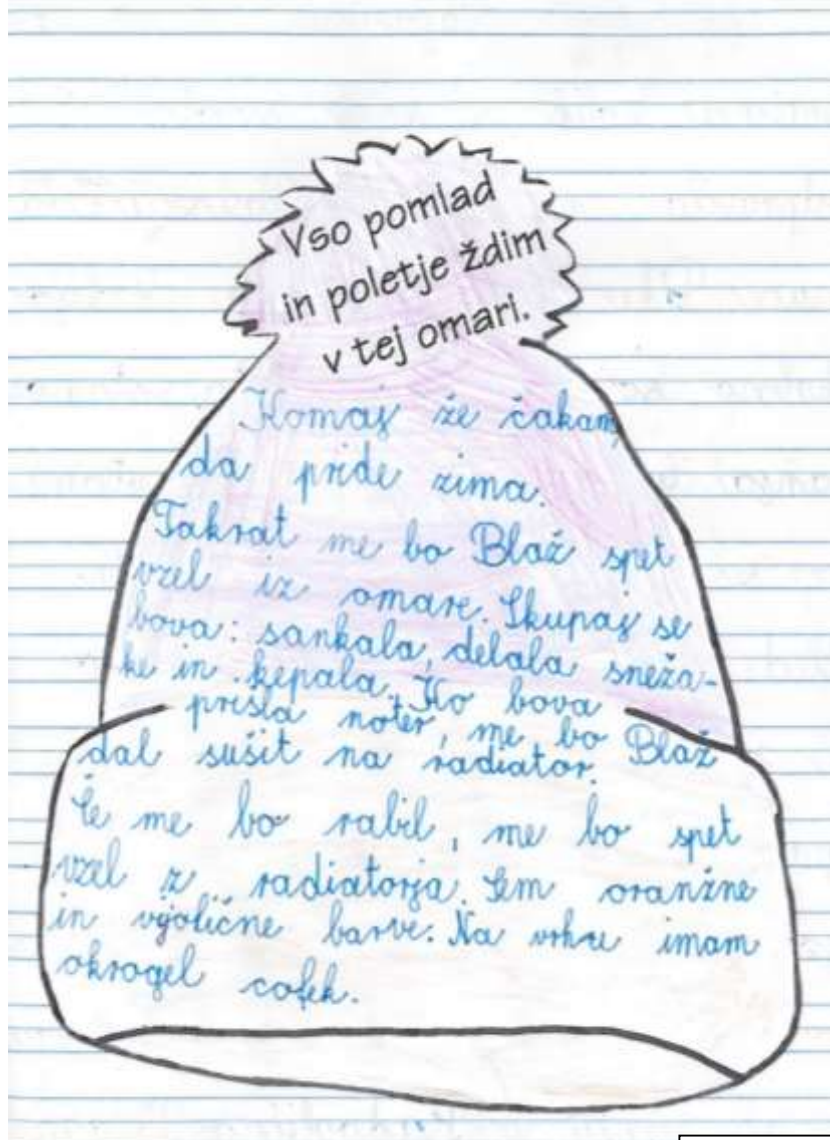 Vso pomlad
in poletje ždim
v tej omari.
Komaj že čakam,
da pride zima.
Takrat me bo Blaž spet
vzel iz omare. Skupaj se
bova: sankala, delala sneža-
ke in kepala. Ko bova
prišla noter, me bo Blaž
dal sušit na radiator.
Če me bo rabil, me bo spet
vzel z radiatorja. Sem oranžne
in vijolične barve. Na vrhu imam
okrogel cofek.